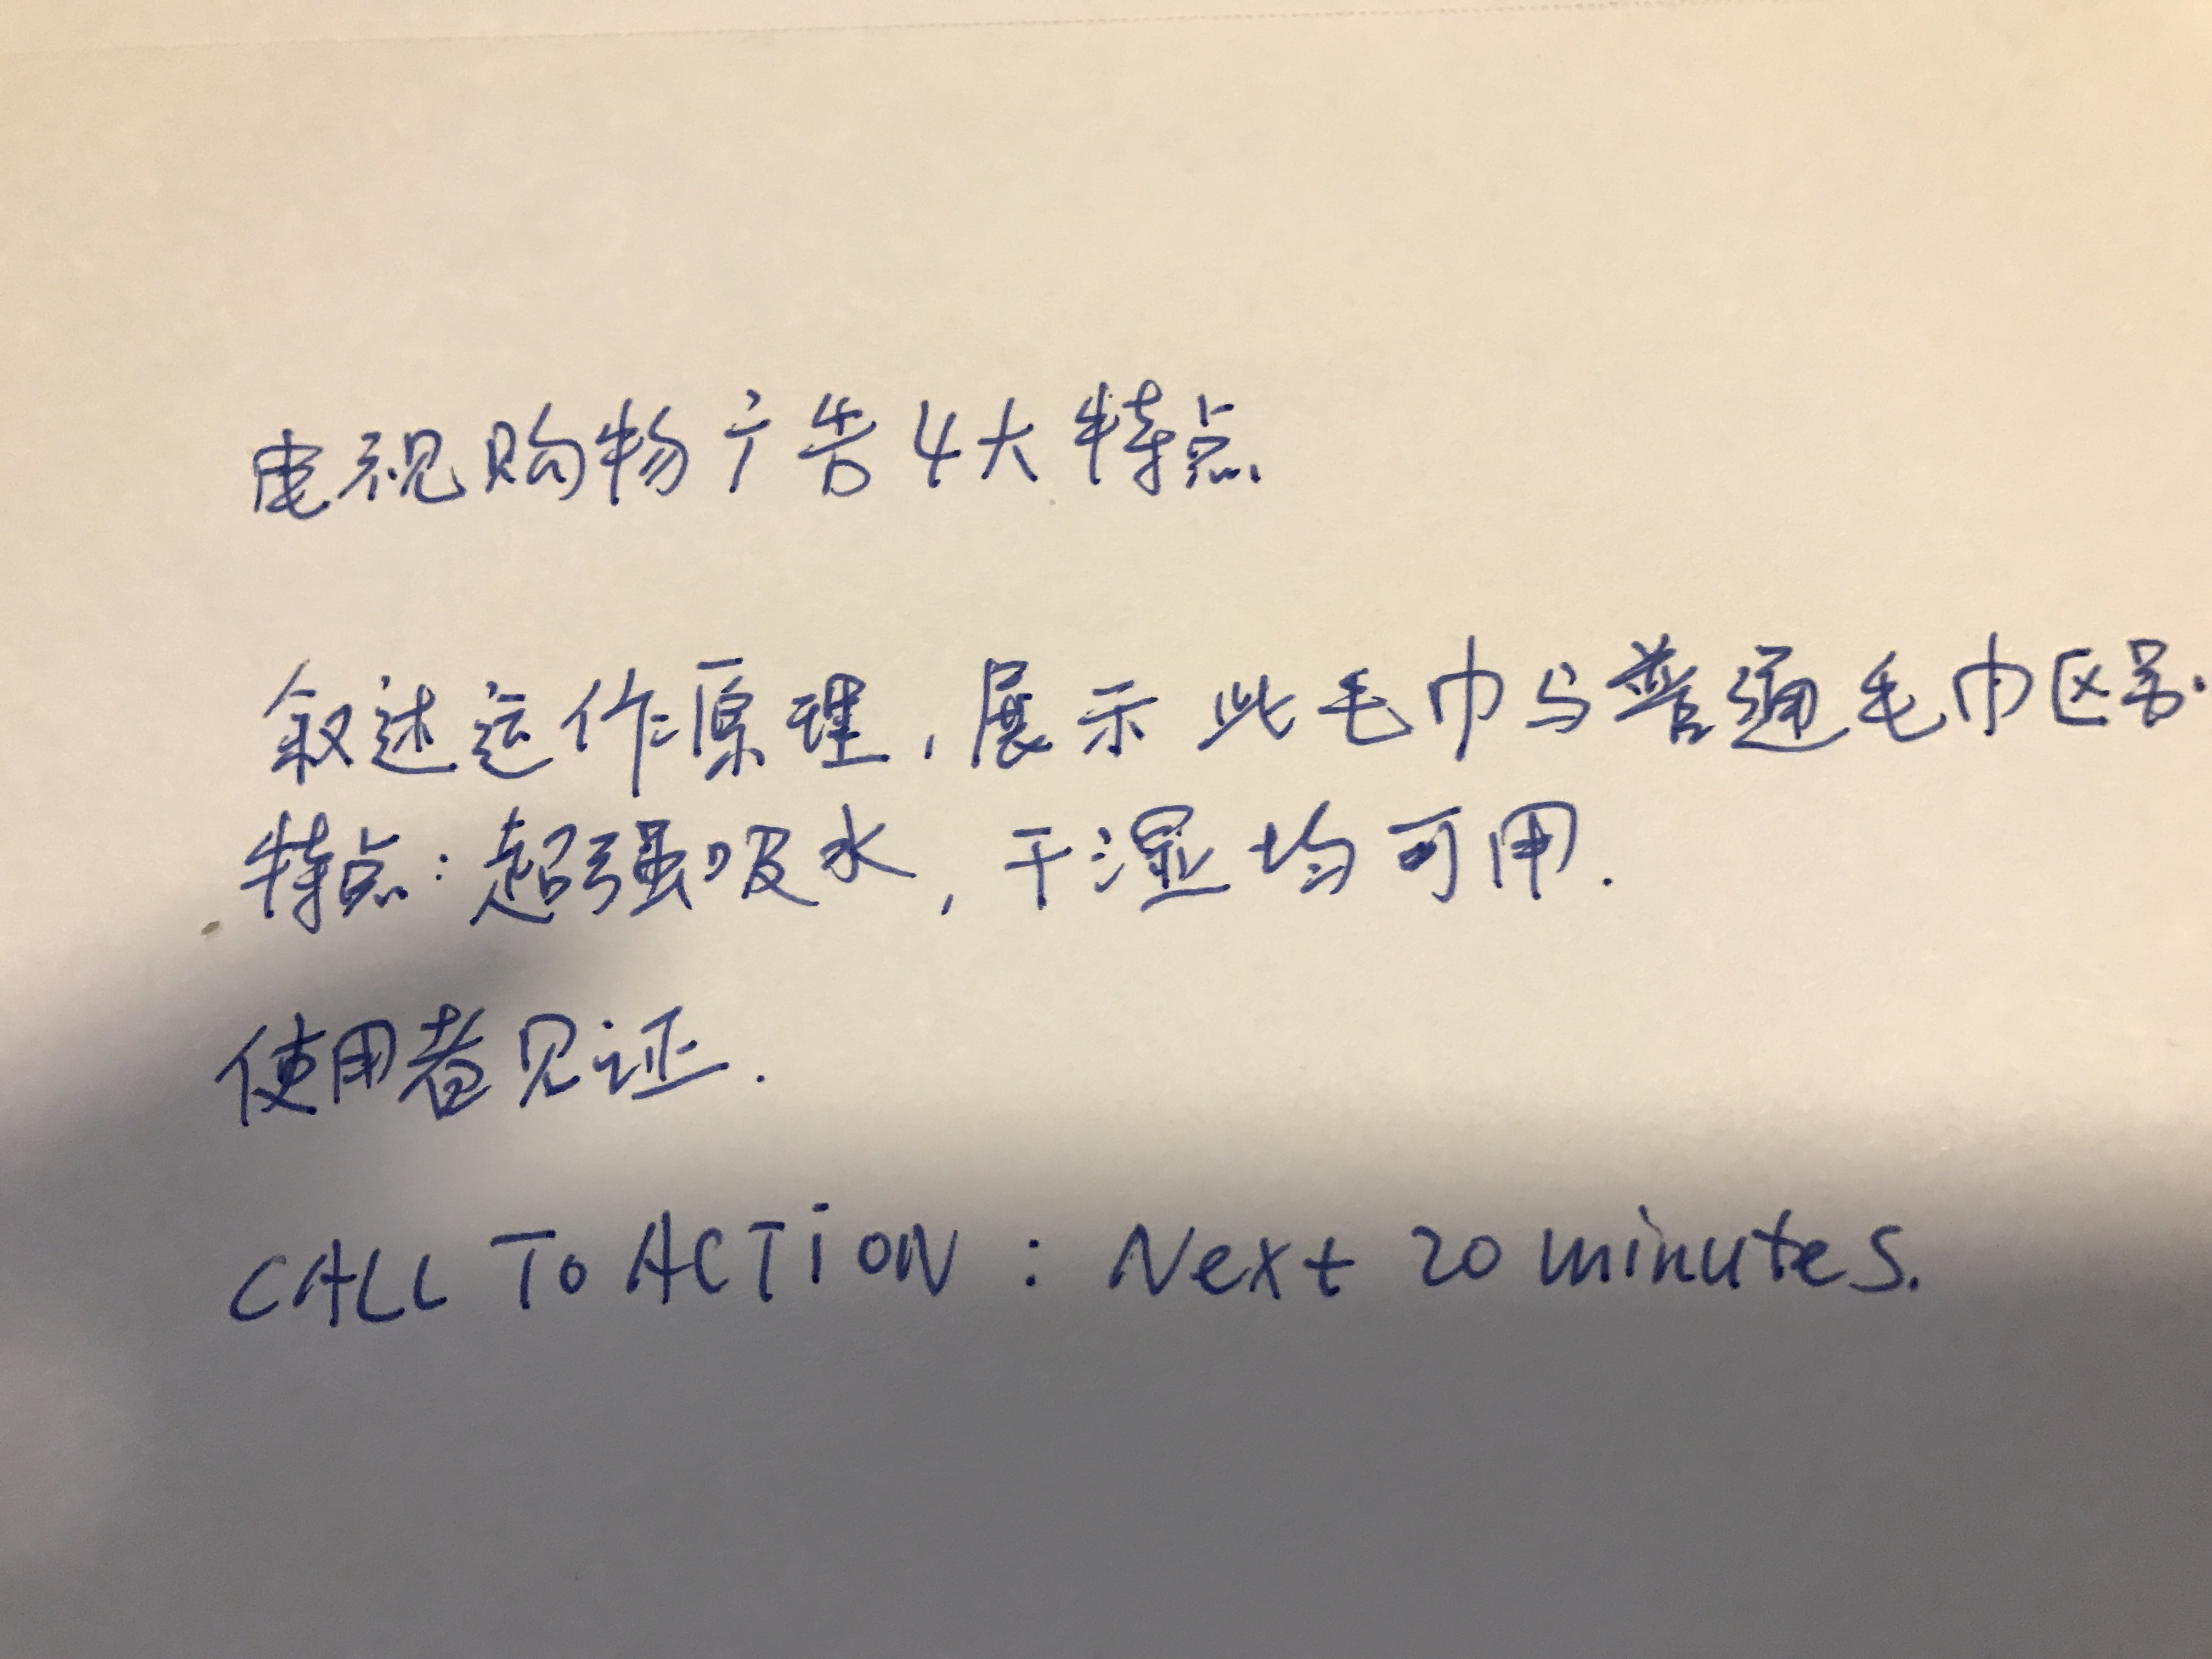 电视购物广告4大特点.
叙述运作原理,展示此毛巾与普通毛巾区别.
特点:超强吸水,干湿均可用.
使用者见证.
CALL To ACTiON : Next 20 minutes.